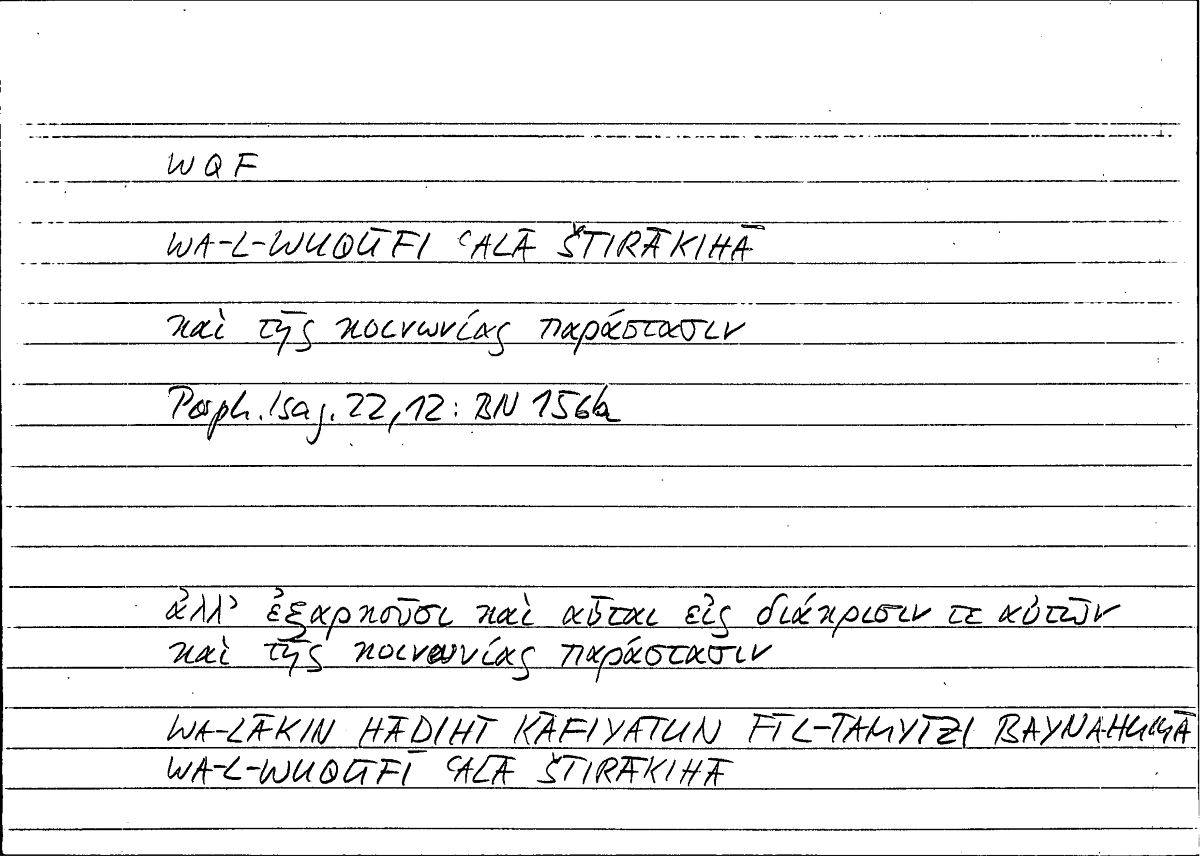 WQF
WA-L-WUQŪFI ʿALĀ ŠTIRĀKIHĀ
καὶ τῆς κοινωνίας παράστασιν
Porph. Isag. 22,12: BN 156a
ἀλλ' ἐξαρκοῦσι καὶ αὗται εἰς διάκρισιν τε αὐτῶν
καὶ τῆς κοινωνίας παράστασιν
WA-LĀKIN HĀḎIHĪ KĀFIYATUN FĪ L-TAMYĪZI BAYNAHUMĀ
WA-L-WUQŪFĪ ʿALĀ ŠTIRĀKIHĀ